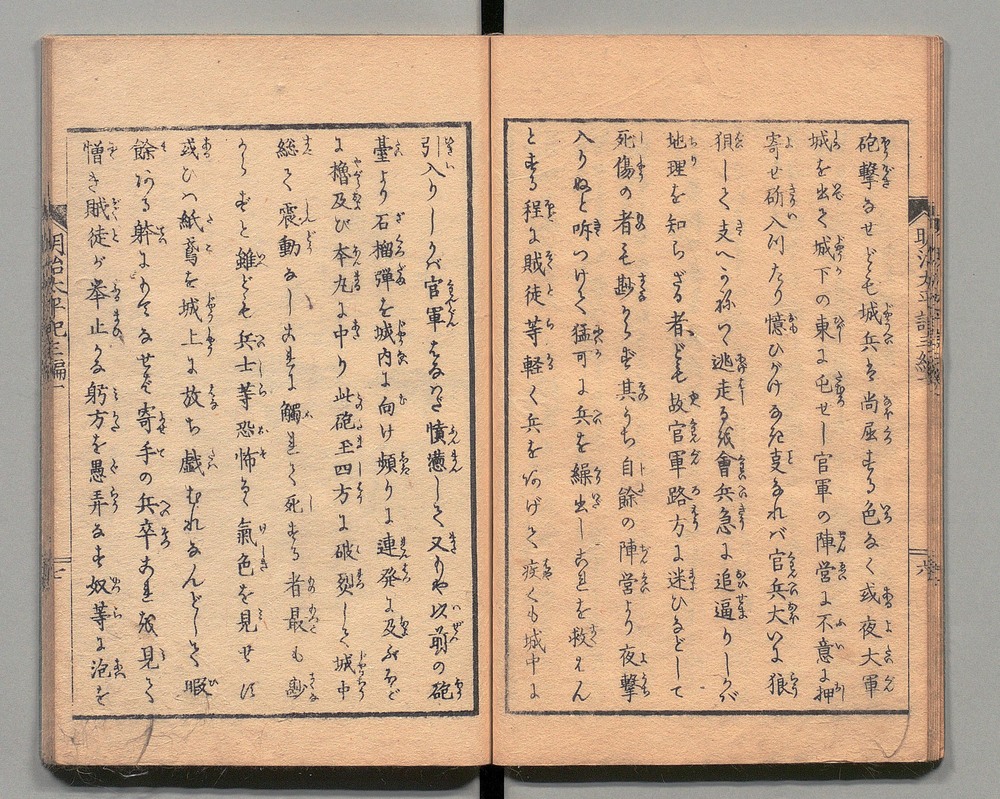 砲撃なせども城兵は尚屈する色なく或夜大軍
城を出て城下の東に屯せし官軍の陣営に不意に押
寄せ斫入りたり憶ひがけなき事なれバ官兵大いに狼
狽して支へかねつゝ逃走るを會兵急に追逼りしが
地理を知らざる者ども故官軍路方に迷ひなどして
死傷の者も尠からず其うち自餘の陣営より夜撃
入りぬと呼つけて猛可に兵を繰出しこれを救はん
とする程に賊徒等軽く兵をあげて疾くも城中に
引入りしかバ官軍はなハだ憤懣して又もや以前の砲
臺より石榴弾を城内に向け頻りに連発に及ぶほど
に櫓及び本丸に中り此砲玉四方に破烈して城中
総て震動なしこれに觸れて死する者最も尠
からずと雖ども兵士等恐怖す氣色を見せず
或ひハ紙鳶を城上に放ち戯むれなんどして暇
餘りある躰にもてなせバ寄手の兵卒これを見て
憎き賊徒が挙止かな躬方を愚弄なす奴等に泡を
明治太平記三編一